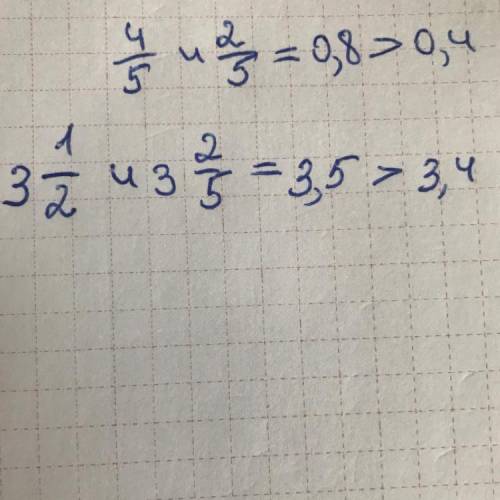 4/5 и 2/5 = 0,8 > 0,4
3 1/2 и 3 2/5 = 3,5 > 3,4